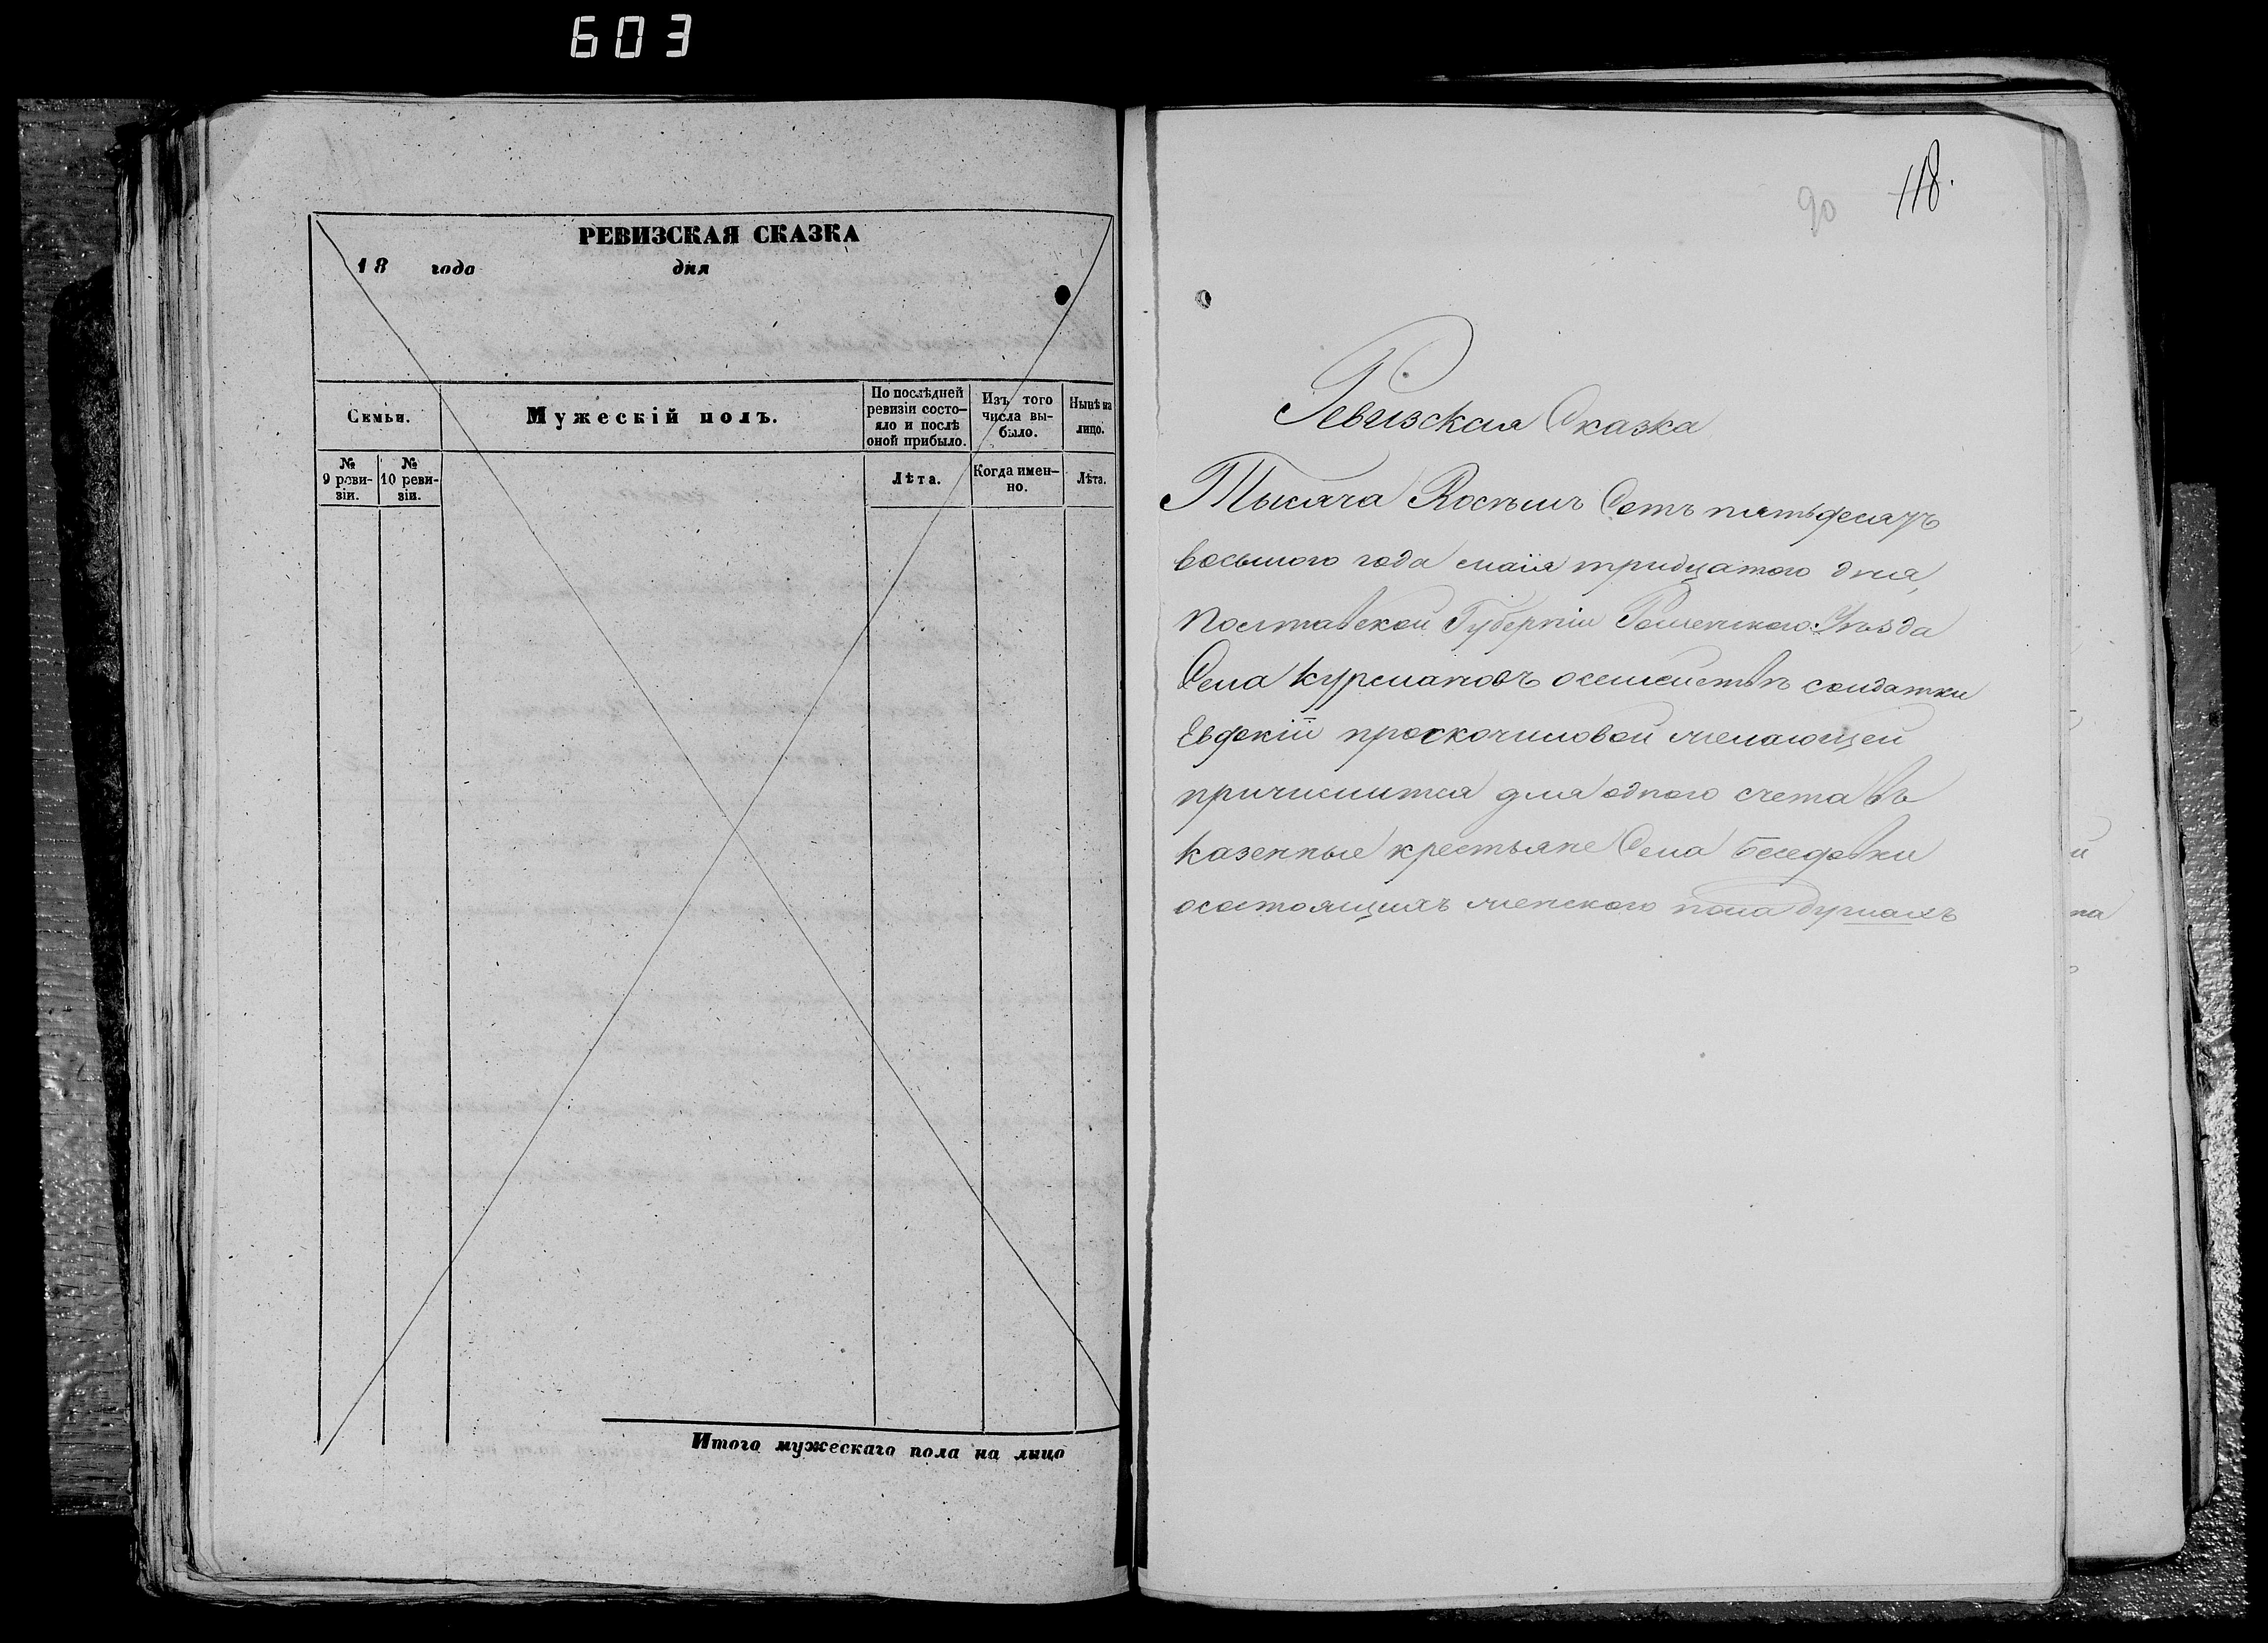 603
РЕВИЗСКАЯ СКАЗКА
18 года дня
Семьи.
Мужескій полъ.
По послѣдней ревизіи состо-
яло и послѣ оной прибыло.
Изъ того числа вы-
было.
Нынѣ на лицо.
№ 9 реви-
зіи.
№ 10 реви-
зіи.
Лѣта.
Когда имен-
но.
Лѣта.
Итого мужескаго пола на лицо
90 118.
Ревизская Сказка
Тысяча Восѣмъ Сотъ пятьдесятъ
восьмого года маія тридцатого дня,
Полтавской Губерніи Роменского Уѣзда
Села Курмановъ осемействѣ солдатки
Евдокіи проскочиловой желающей
причислится для одного счета въ
казенные крестьяне Села Беседовки
осостоящихъ женского пола душахъ